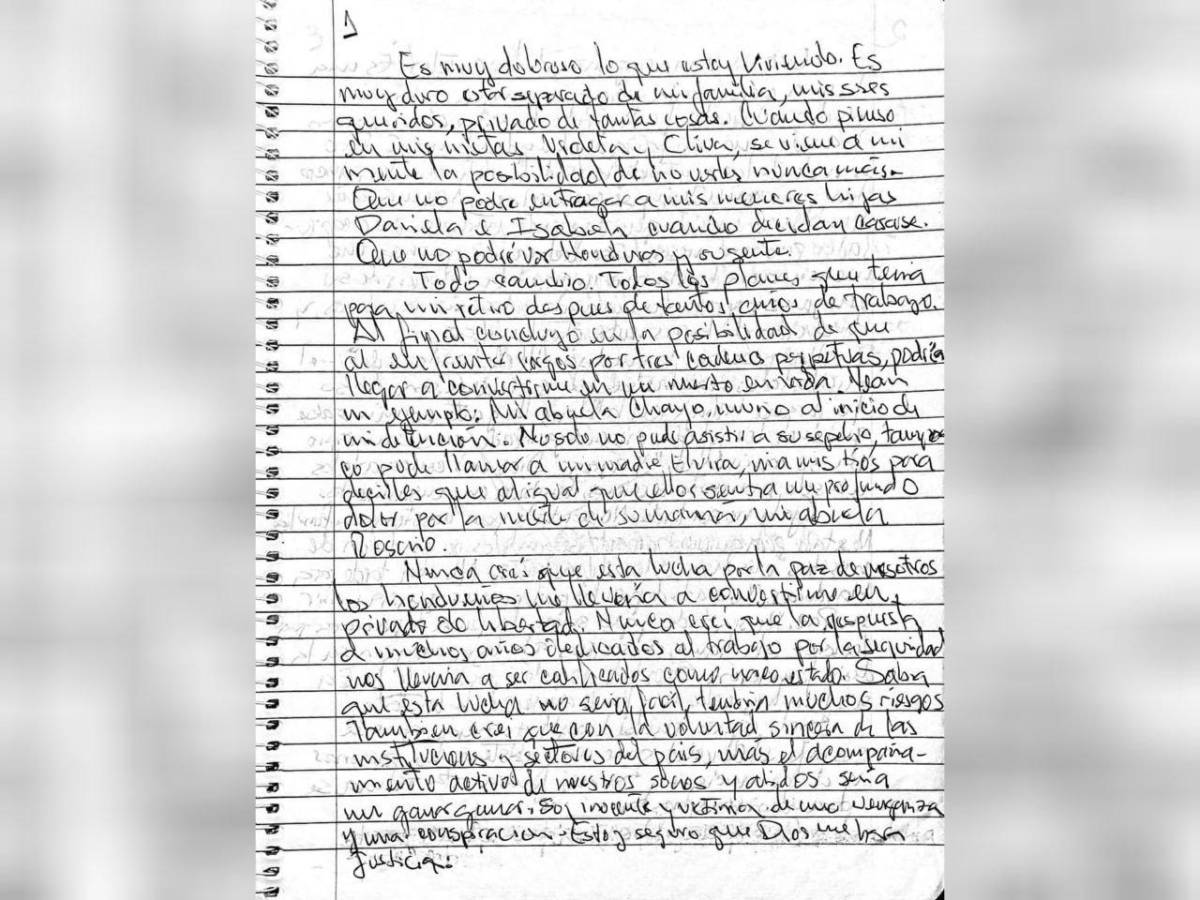 1
Es muy doloroso lo que estoy viviendo. Es
muy duro estar separado de mi familia, mis seres
queridos, privado de tantas cosas. Cuando pienso
en mis nietas Violeta y se viene a mi
mente la posibilidad de no verles nunca más.
Que no podré entregar a mis menores hijas
Daniela e Isabela cuando decidan casarse.
Que no podré ver Honduras y su gente.
Todo cambio. Todos los planes que tenia
para mi retiro despues de tantos años de trabajo.
Al final concluyo en la posibilidad de que
al enfrentar cargos por tres cadenas perpetuas, podria
llegar a convertirme en un muerto en vida. Vean
un ejemplo: Mi abuela Chayo, murio al inicio de
mi detención. No solo no pude asistir a su sepelio, tampo
co pude llamar a mi madre Elvira, ni a mis tios para
decirles que al igual que ellos sentia un profundo
dolor por la muerte de su mamá, mi abuela
Rosario.
Nunca creí que esta lucha por la paz de nosotros
los hondureños me llevaria a convertirme en
privado de libertad. Nunca creí que la respuesta
a muchos años dedicados al trabajo por la seguridad
nos llevaria a ser calificados como narco estado. Sabia
que esta lucha no seria facil, tendria muchos riesgos
Tambien crei que con la voluntad sincera de las
instituciones y sectores del país, más el acompaña-
miento activo de nuestros socios y aliados seria
un ganar ganar. Soy inocente y victima de una venganza
y una conspiracion. Estoy seguro que Dios me hara
justicia.